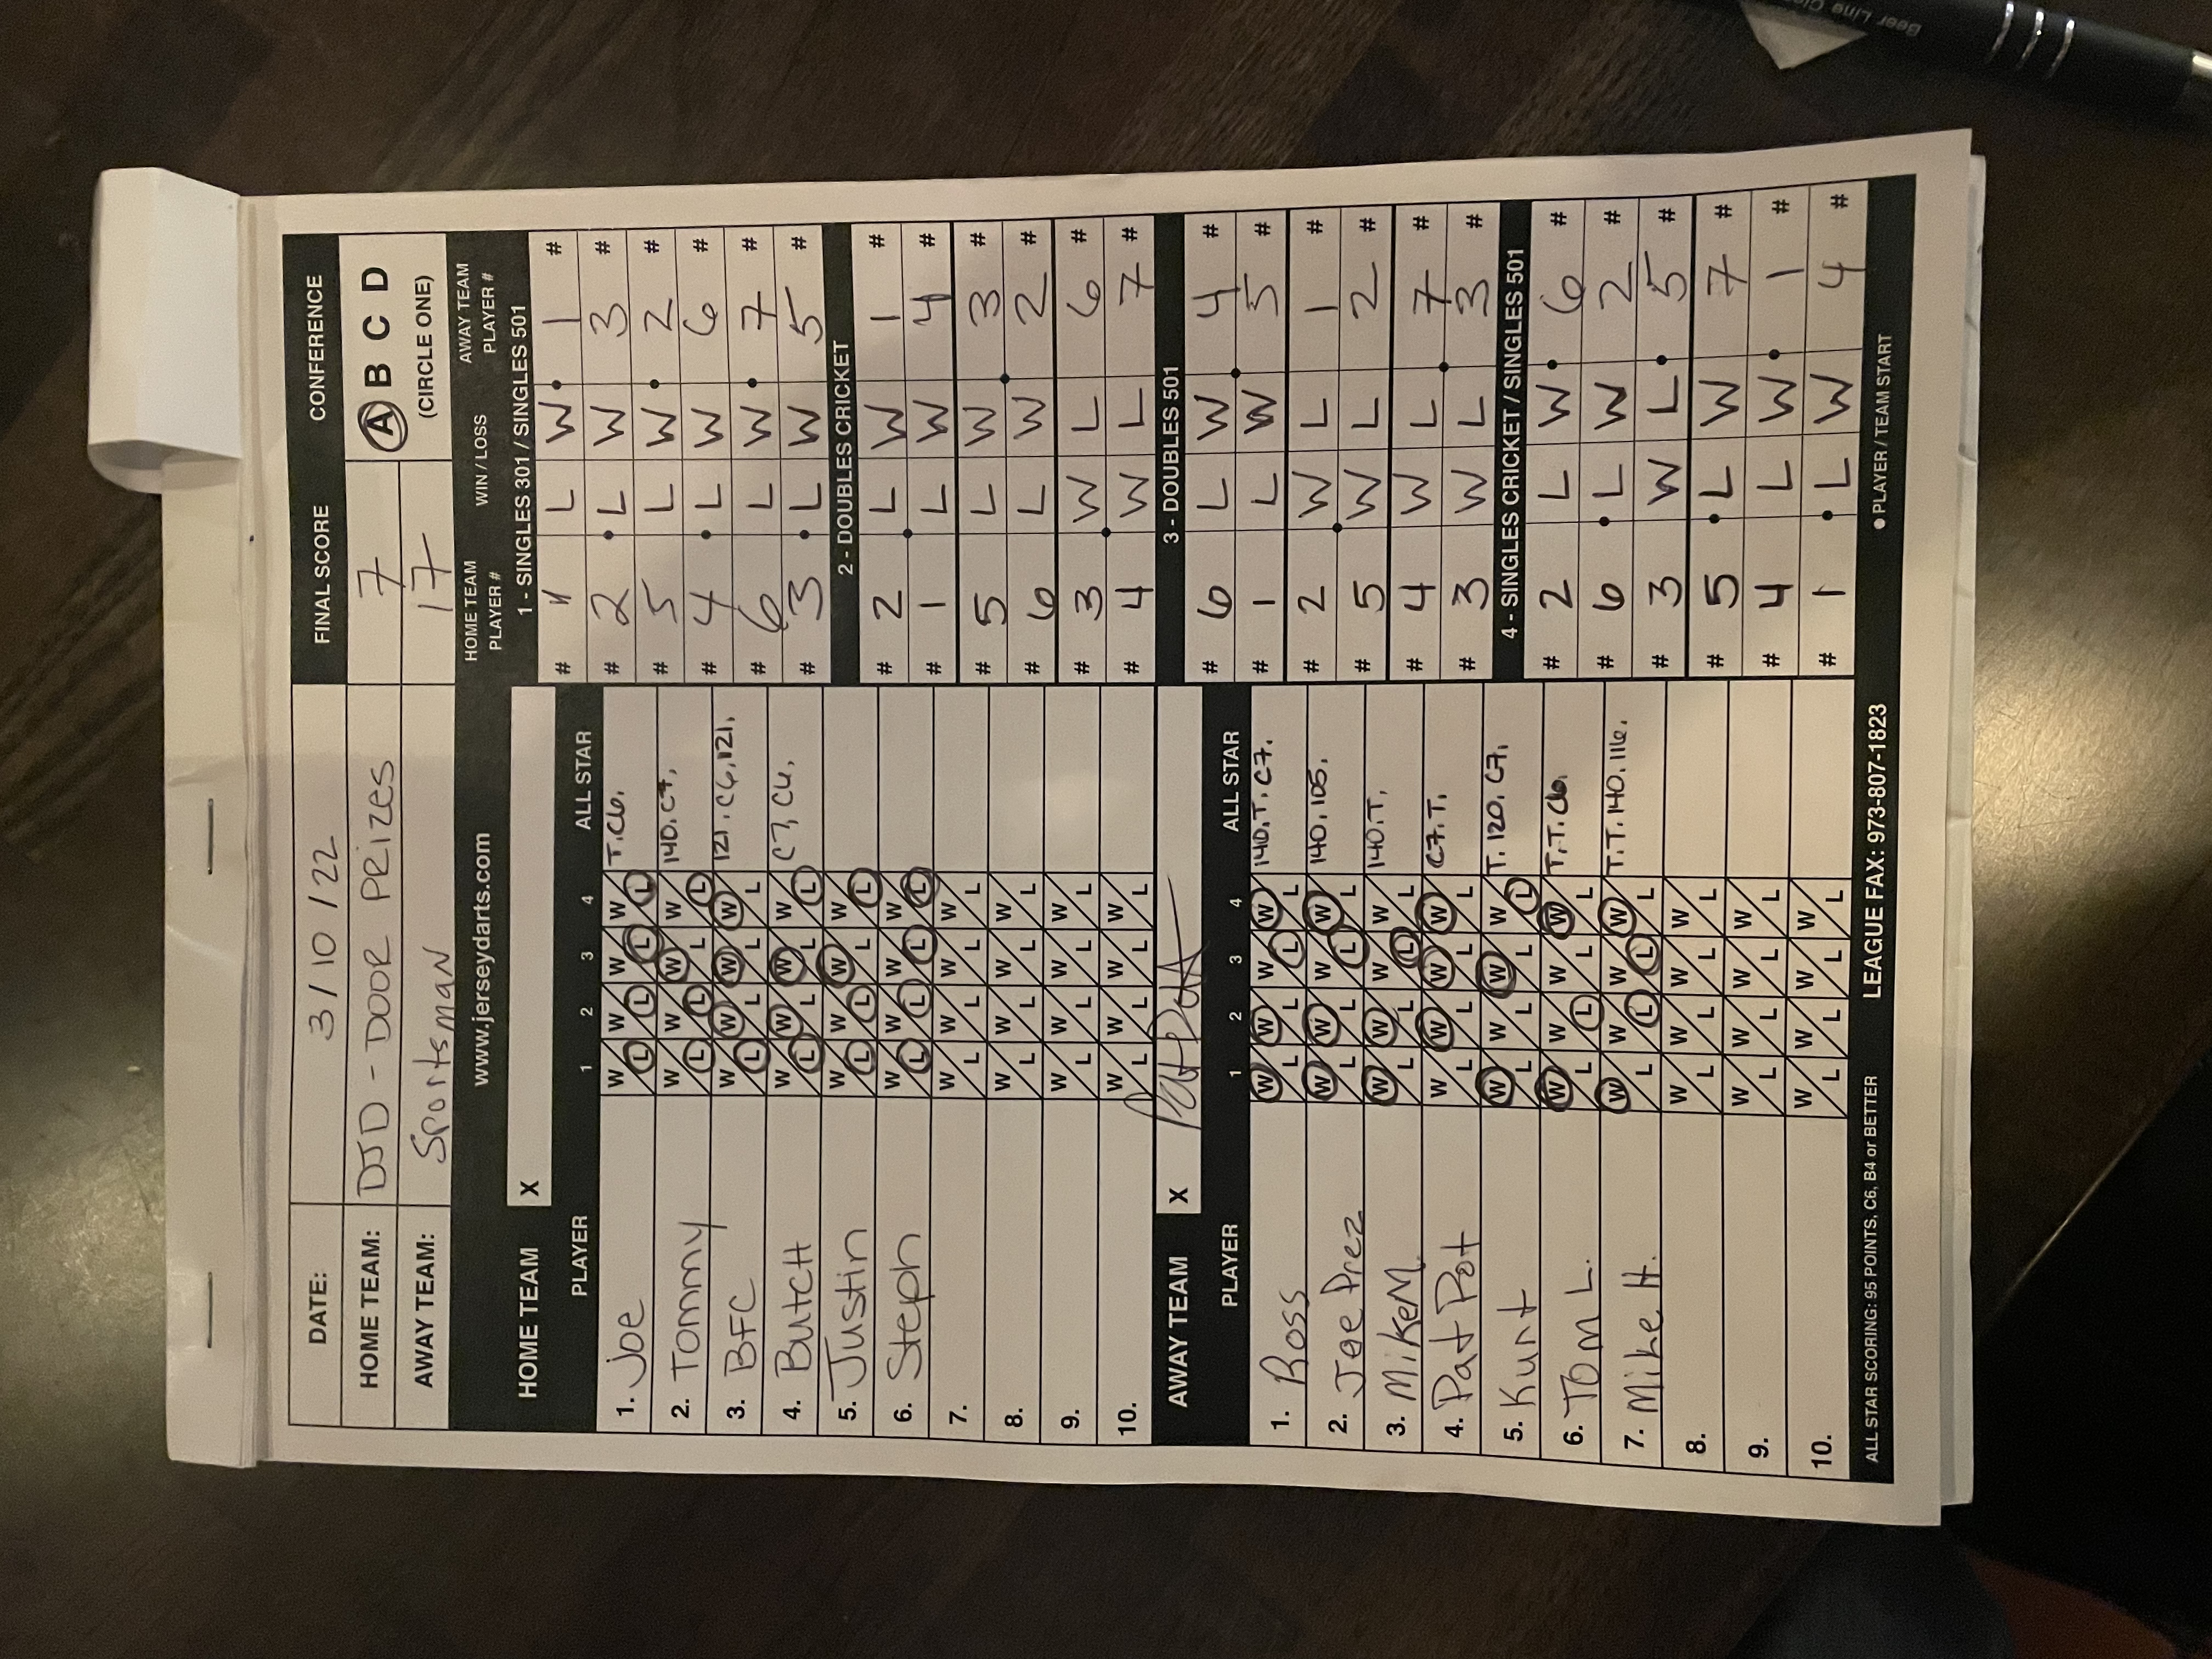 DATE: 3/10/22 FINAL SCORE CONFERENCE
HOME TEAM: DJD - DOOR PRIZES 7 A B C D
AWAY TEAM: Sportsman 17 (CIRCLE ONE)
www.jerseydarts.com
HOME TEAM X
PLAYER 1 2 3 4 ALL STAR
1. Joe W L W L W L W L T.C6.
2. Tommy W L W L W L W L 140.C7.
3. BFC W L W L W L W L 121.C6.121.
4. Butch W L W L W L W L C7.C6.
5. Justin W L W L W L W L
6. Steph W L W L W L W L
7. W L W L W L W L
8. W L W L W L W L
9. W L W L W L W L
10. W L W L W L W L
AWAY TEAM X Pat Pot
PLAYER 1 2 3 4 ALL STAR
1. Ross W L W L W L W L 140.T.C7.
2. Joe Prez W L W L W L W L 140.105.
3. Mike M. W L W L W L W L 140.T.
4. Pat Pot W L W L W L W L C7.T.
5. Kurt W L W L W L W L T.120.C7.
6. Tom L. W L W L W L W L T.T.C6.
7. Mike H. W L W L W L W L T.T.140.116.
8. W L W L W L W L
9. W L W L W L W L
10. W L W L W L W L
HOME TEAM PLAYER # WIN / LOSS AWAY TEAM PLAYER #
1 - SINGLES 301 / SINGLES 501
# 1 L W 1 #
# 2 L W 3 #
# 5 L W 2 #
# 4 L W 6 #
# 6 L W 7 #
# 3 L W 5 #
2 - DOUBLES CRICKET
# 2 L W 1 #
# 1 L W 4 #
# 5 L W 3 #
# 6 L W 2 #
# 3 W L 6 #
# 4 W L 7 #
3 - DOUBLES 501
# 6 L W 4 #
# 1 L W 5 #
# 2 W L 1 #
# 5 W L 2 #
# 4 W L 7 #
# 3 W L 3 #
4 - SINGLES CRICKET / SINGLES 501
# 2 L W 6 #
# 6 L W 2 #
# 3 W L 5 #
# 5 L W 7 #
# 4 L W 1 #
# 1 L W 4 #
ALL STAR SCORING: 95 POINTS, C6, B4 or BETTER LEAGUE FAX: 973-807-1823 ● PLAYER / TEAM START
Beer Line